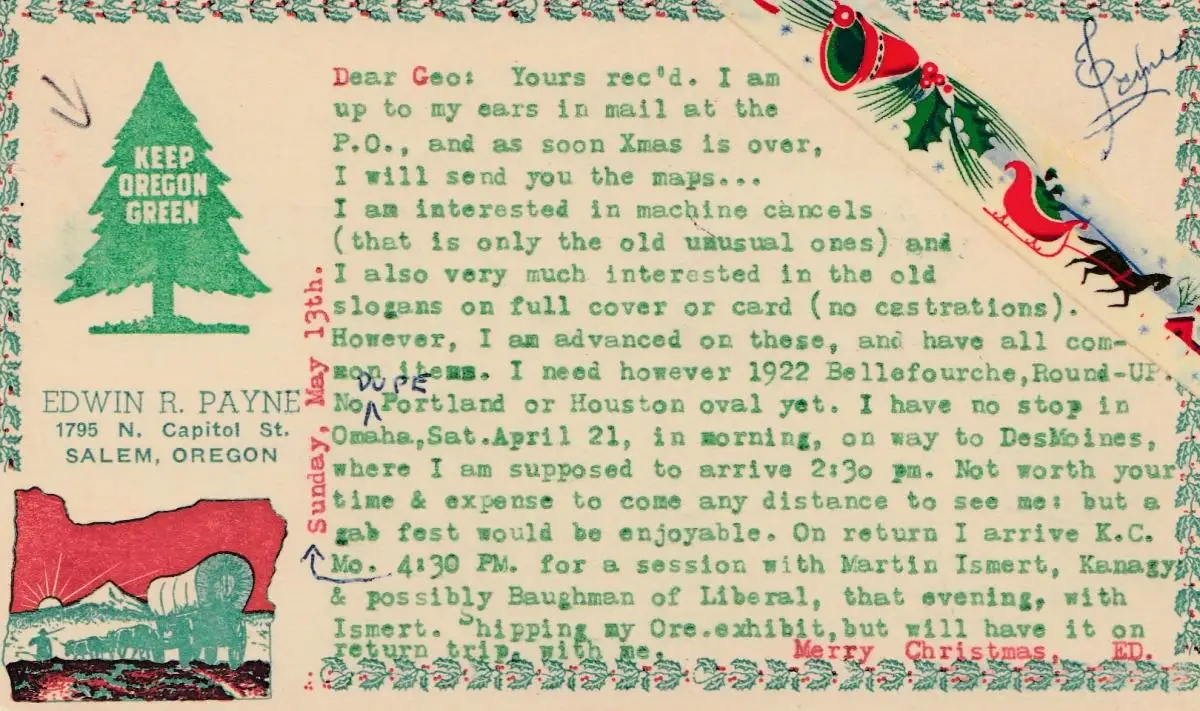 KEEP
OREGON
GREEN
EDWIN R. PAYNE
1795 N. Capitol St.
SALEM, OREGON
Payne
Dear Geo: Yours rec'd. I am
up to my ears in mail at the
P.O., and as soon Xmas is over,
I will send you the maps...
I am interested in machine cancels
(that is only the old unusual ones) and
I also very much interested in the old
slogans on full cover or card (no castrations).
However, I am advanced on these, and have all com-
mon items. I need however 1922 Bellefourche,Round-UP.
No DUPE Portland or Houston oval yet. I have no stop in
Omaha,Sat.April 21, in morning, on way to DesMoines,
where I am supposed to arrive 2:30 pm. Not worth your
time & expense to come any distance to see me: but a
gab fest would be enjoyable. On return I arrive K.C.
Mo. 4:30 PM. for a session with Martin Ismert, Kanagy,
& possibly Baughman of Liberal, that evening, with
Ismert. Shipping my Ore.exhibit,but will have it on
return trip, with me. Merry Christmas, ED.
Sunday, May 13th.